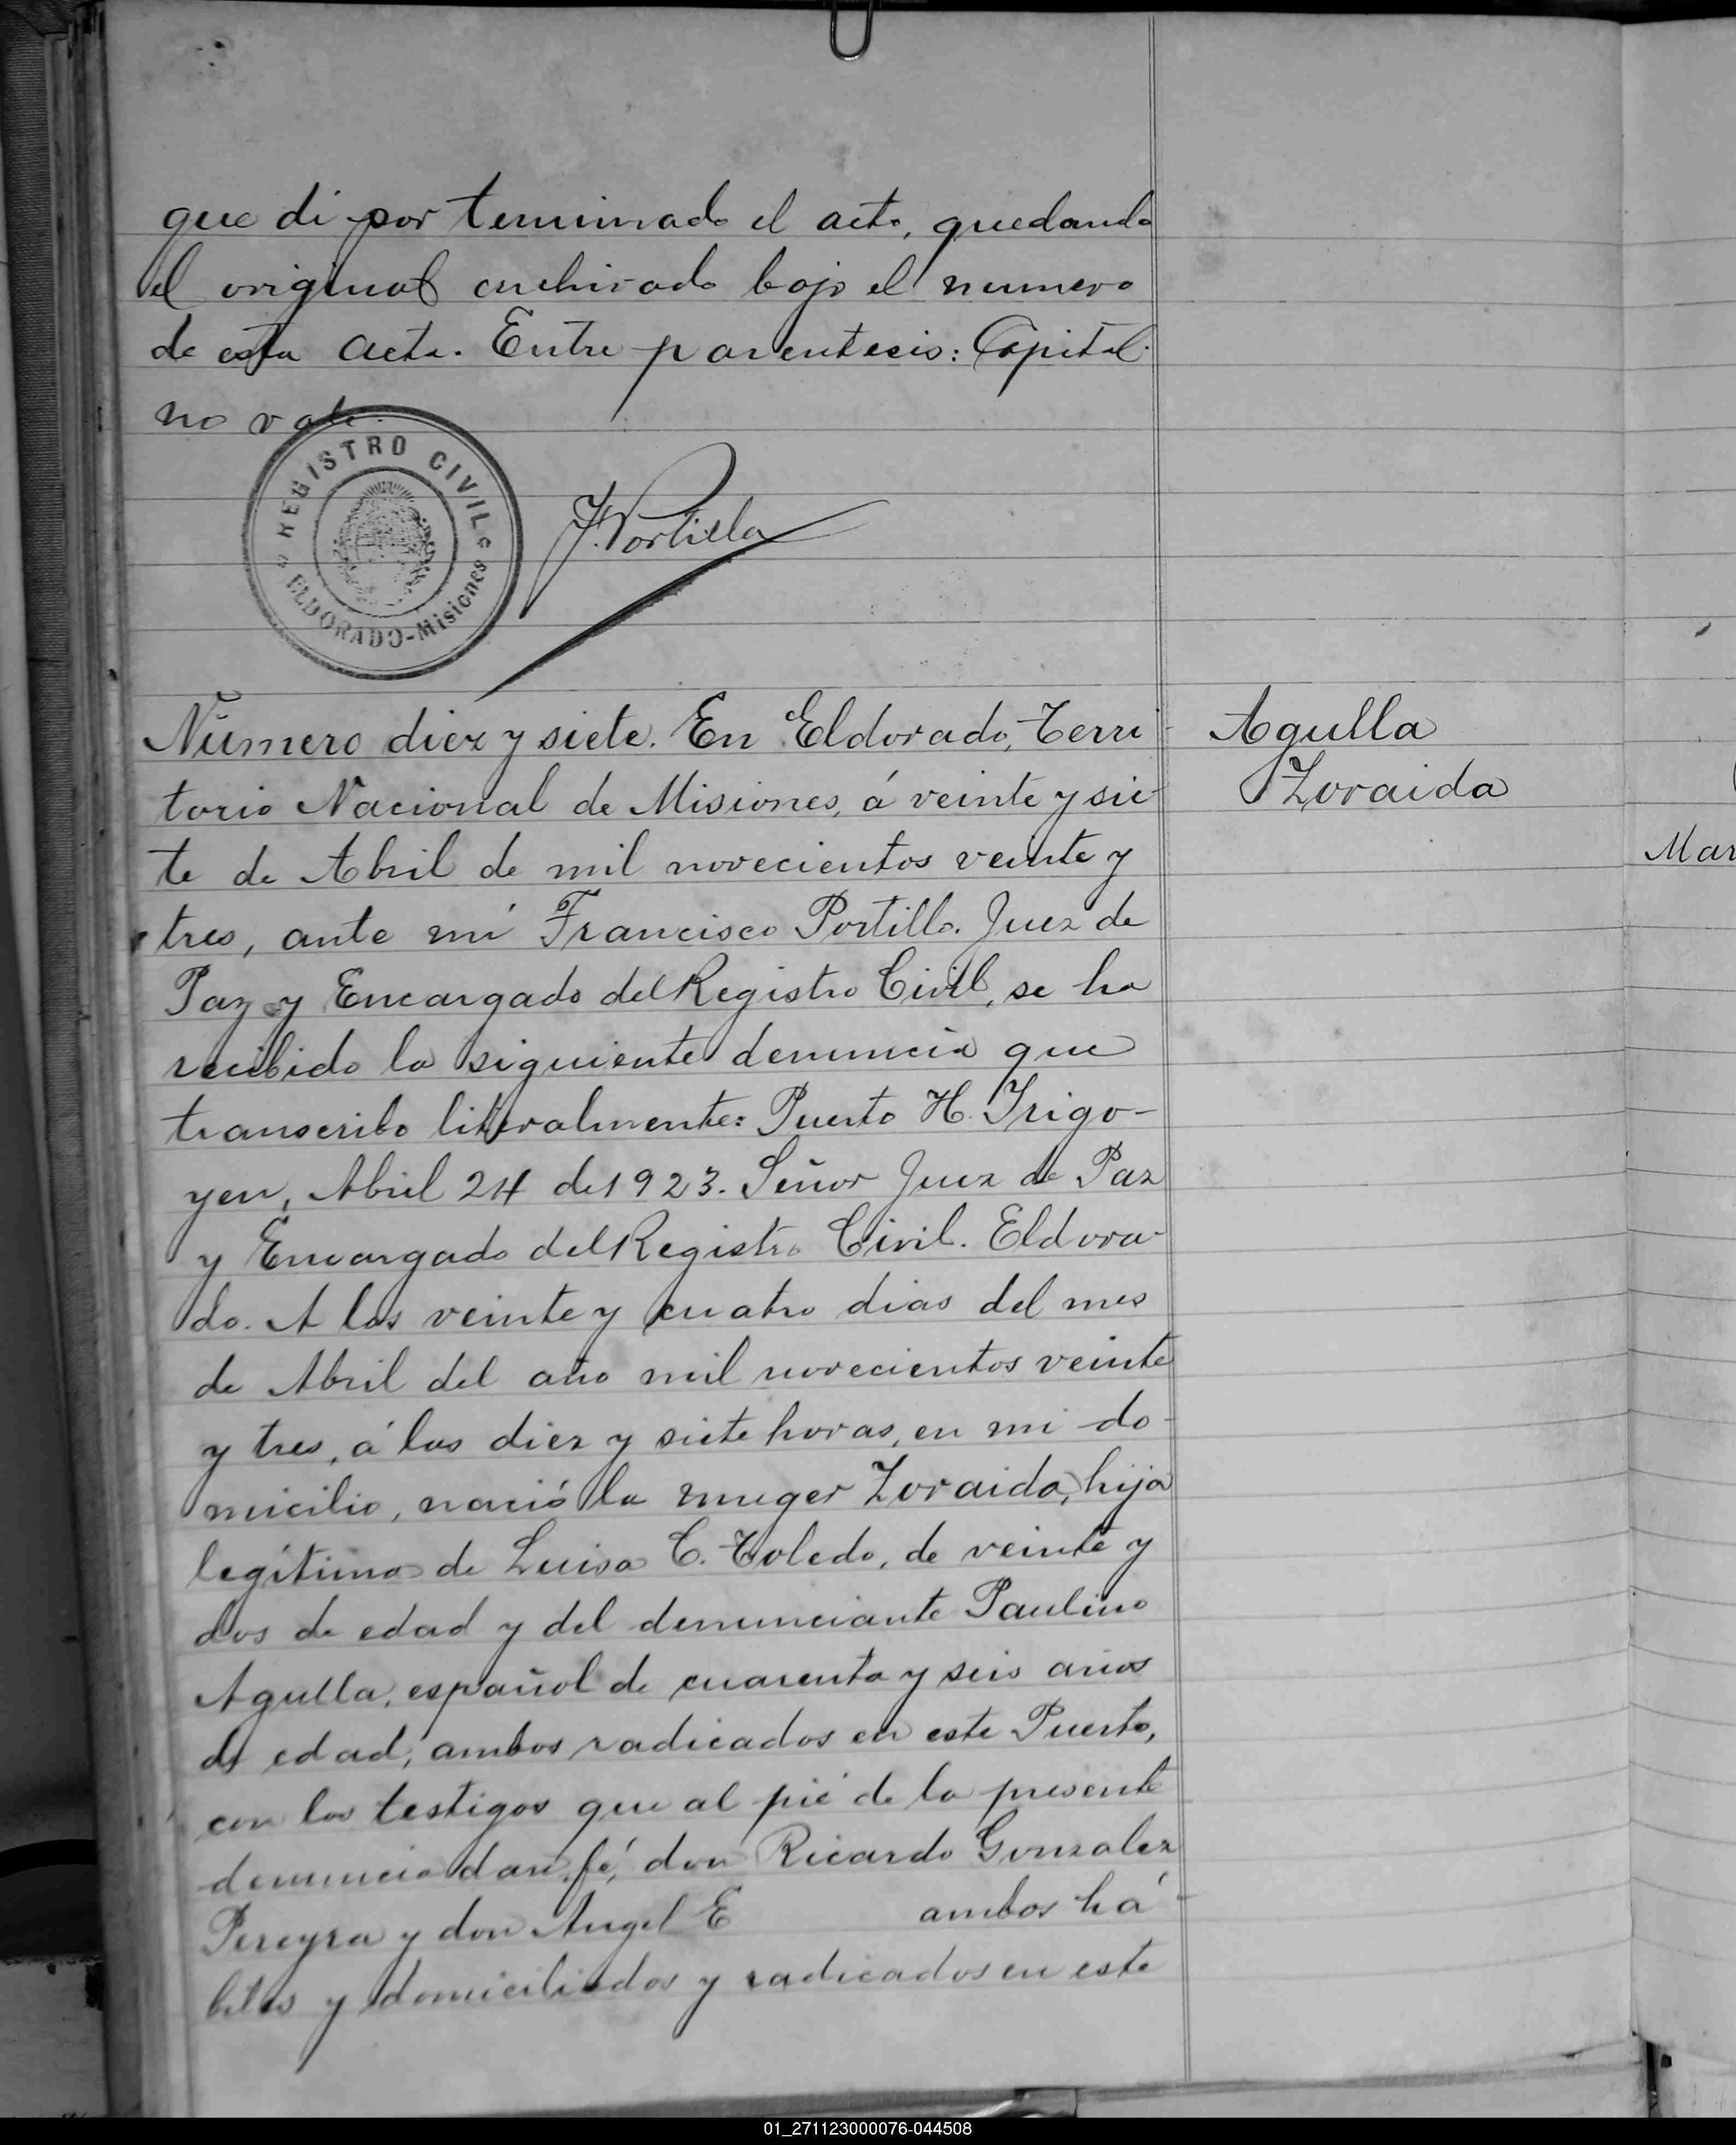 que di por terminado el acto, quedando
el original archivado bajo el numero
de esta acta. Entre parentecis: Capital
no vale.
REGISTRO CIVIL
ELDORADO-Misiones
F. Portillo
Número diez y siete. En Eldorado, Terri-
torio Nacional de Misiones, á veinte y sie-
te de Abril de mil novecientos veinte y
tres, ante mí Francisco Portillo. Juez de
Paz y Encargado del Registro Civil, se ha
recibido la siguiente denuncia que
transcribo literalmente: Puerto H. Irigo-
yen, Abril 24 de 1923. Señor Juez de Paz
y Encargado del Registro Civil. Eldora-
do. A los veinte y cuatro dias del mes
de Abril del año mil novecientos veinte
y tres, á las diez y siete horas, en mi do-
micilio, nació la muger Zoraida, hija
legítima de Luisa C. Toledo, de veinte y
dos de edad y del denunciante Paulino
Agulla, español de cuarenta y seis años
de edad, ambos radicados en este Puerto,
con los testigos que al pié de la presente
denuncia dan fé, don Ricardo Gonzalez
Pereyra y don Angel E ambos há-
biles y domiciliados y radicados en este
Agulla
Zoraida
Mar
01_271123000076-044508